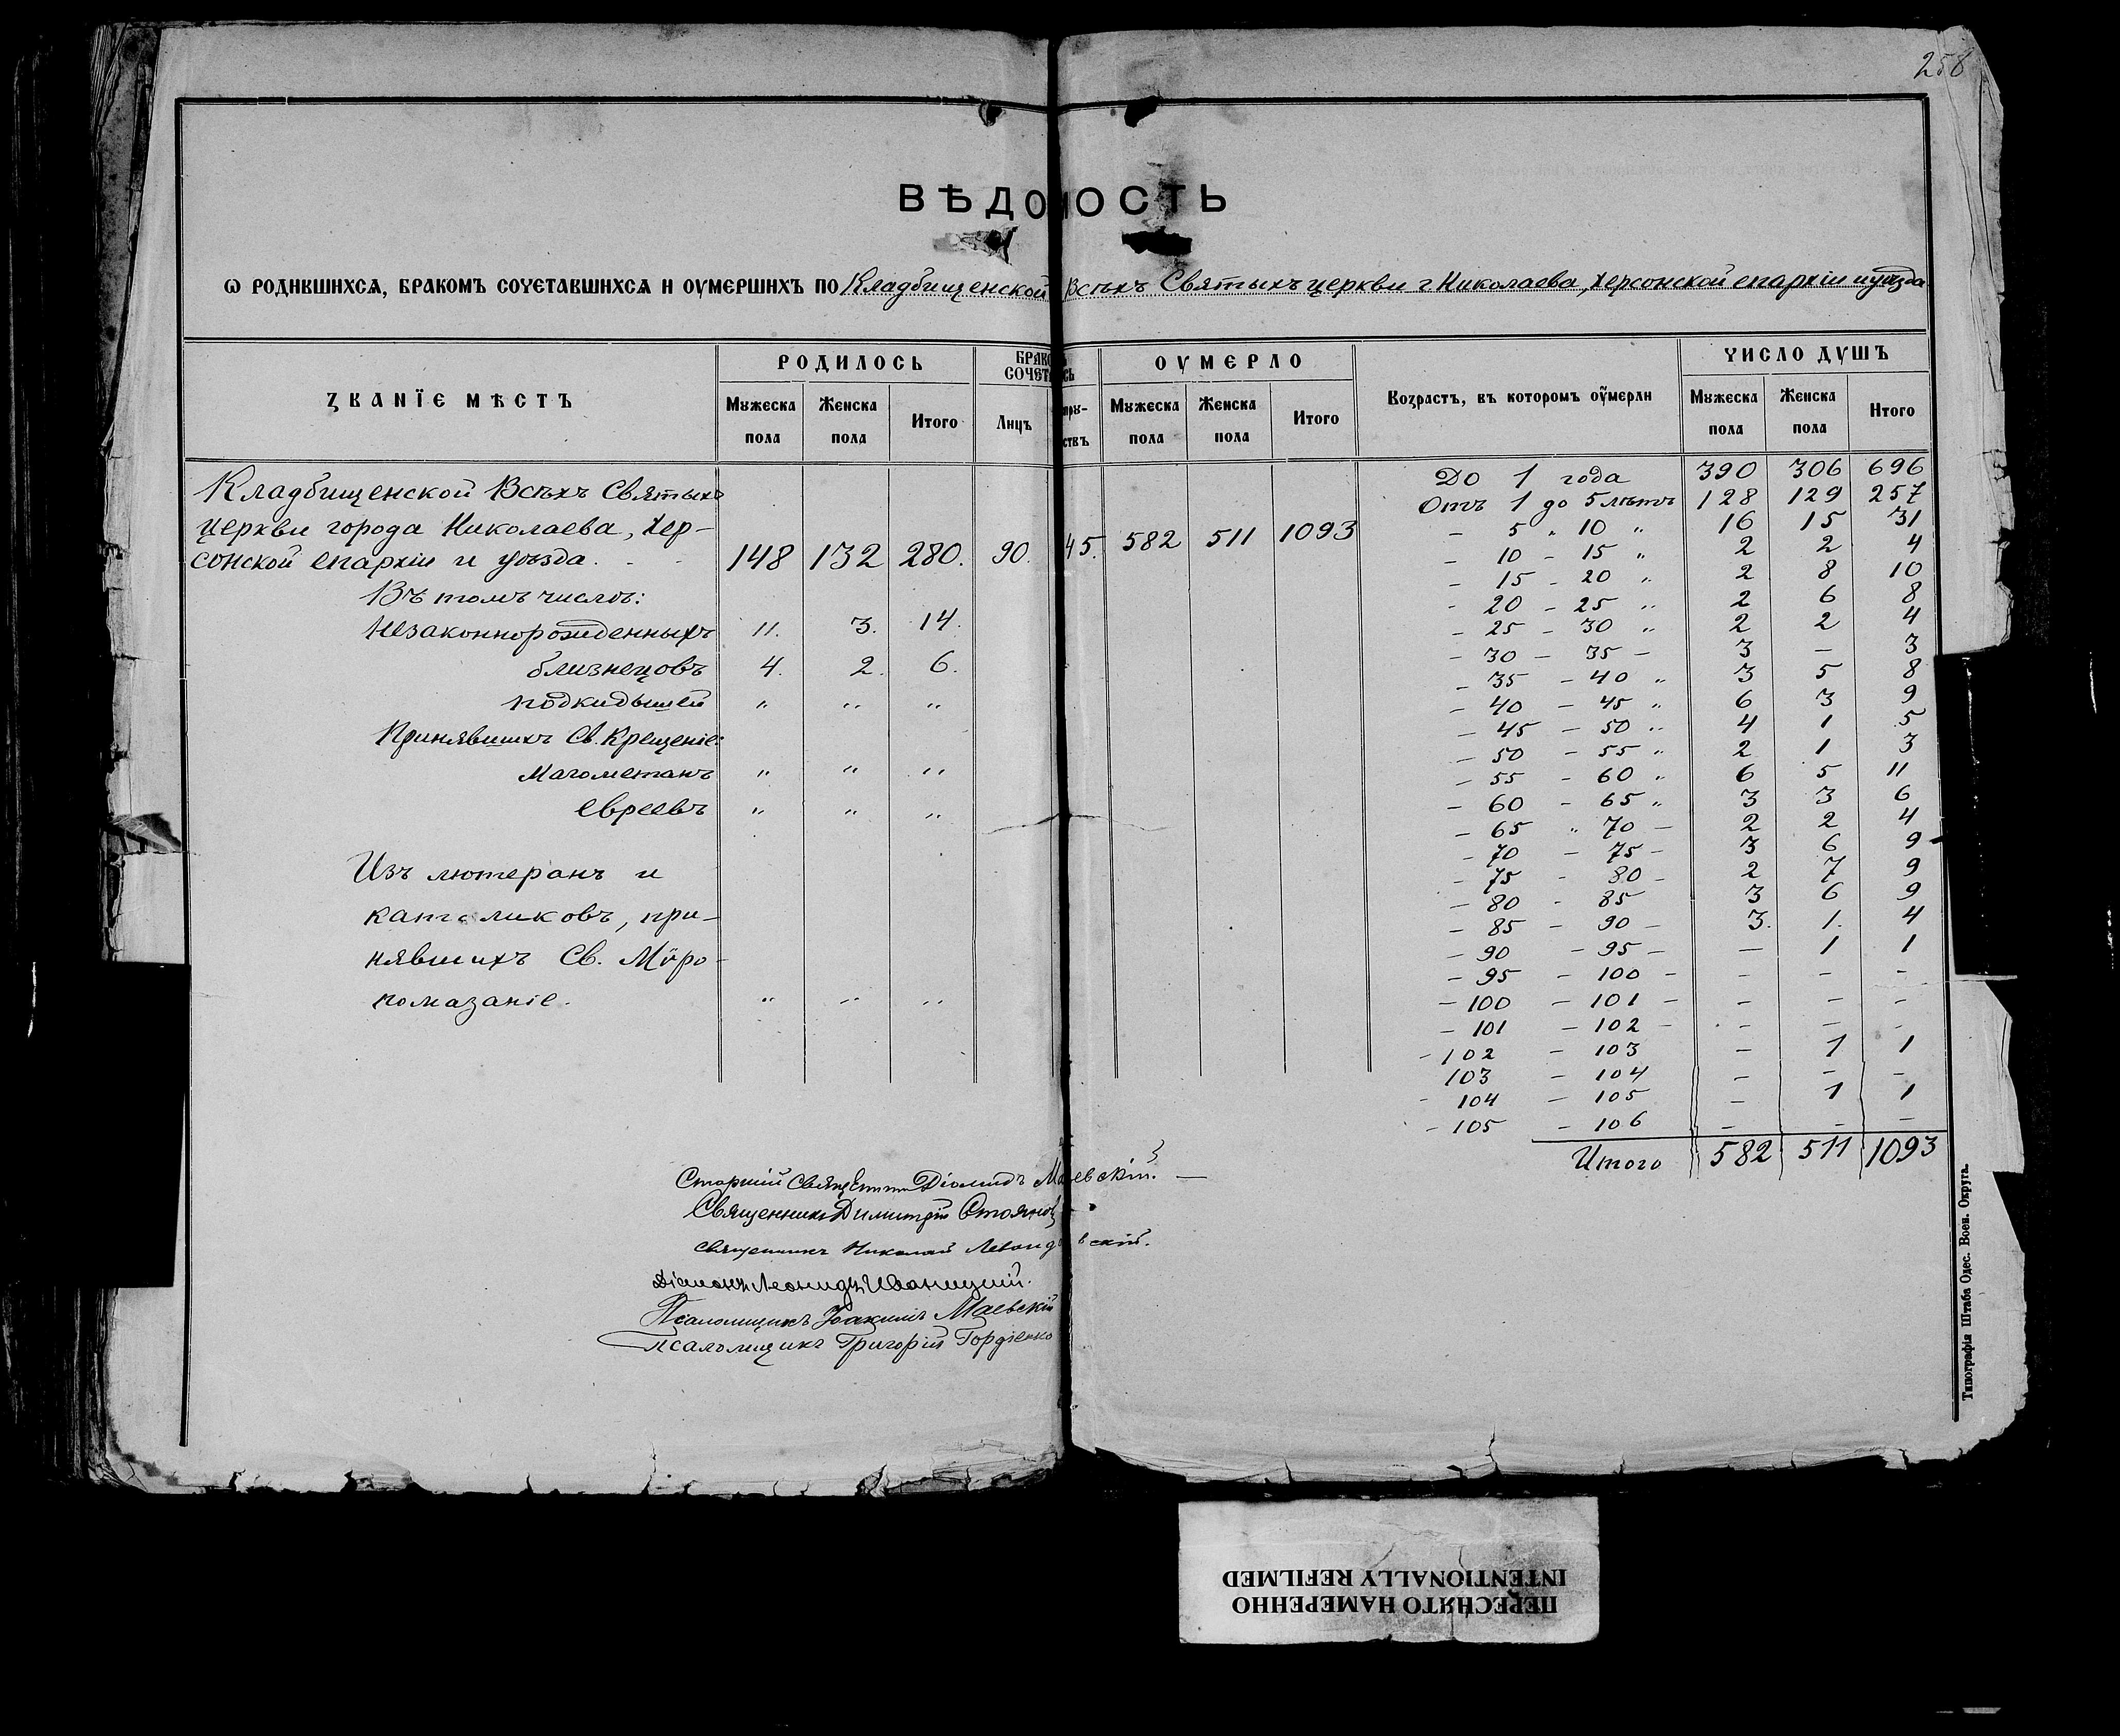 258
ВѢДОМОСТЬ
Ѡ РОДИВШИХСѦ, БРАКОМЪ СОЧЕТАВШИХСѦ И ОУМЕРШИХЪ ПО Кладбищенской Всѣхъ Святыхъ церкви г. Николаева, Херсонской епархіи и уѣзда
ЗВАНЇЕ МѢСТЪ
РОДИЛОСЬ
БРАКОМЪ СОЧЕТАЛИСЬ
ОУМЕРЛО
Возрастъ, въ которомъ оумерли
ЧИСЛО ДУШЪ
Мужеска пола Женска пола Итого Лицъ Мужеска пола Женска пола Итого Мужеска пола Женска пола Итого
Кладбищенской Всѣхъ Святыхъ
церкви города Николаева, Хер-
сонской епархіи и уѣзда. 148 132 280. 90. 45. 582 511 1093
Въ томъ числѣ:
Незаконнорожденныхъ 11. 3. 14.
близнецовъ 4. 2. 6.
подкидышей " " "
Принявшихъ Св. Крещеніе:
Магометанъ " " "
евреевъ " " "
Изъ лютеранъ и
католиковъ, при-
нявшихъ Св. Мѵро-
помазаніе. " " "
До 1 года 390 306 696
Отъ 1 до 5 лѣтъ 128 129 257
- 5 " 10 " 16 15 31
- 10 - 15 " 2 2 4
- 15 - 20 " 2 8 10
- 20 - 25 " 2 6 8
- 25 - 30 " 2 2 4
- 30 - 35 - 3 - 3
- 35 - 40 " 3 5 8
- 40 - 45 " 6 3 9
- 45 - 50 " 4 1 5
- 50 - 55 " 2 1 3
- 55 - 60 " 6 5 11
- 60 - 65 " 3 3 6
- 65 " 70 - 2 2 4
- 70 - 75 - 3 6 9
- 75 - 80 - 2 7 9
- 80 - 85 3 6 9
- 85 - 90 - 3. 1. 4
- 90 - 95 - - 1 1
- 95 - 100 - - - -
- 100 - 101 - - - -
- 101 - 102 - - - -
- 102 - 103 - 1 1
103 - 104 - - -
- 104 - 105 - 1 1
- 105 - 106 - - -
Итого 582 511 1093
Старшій Священникъ Діомидъ Маевскій.
Священникъ Димитрій Стояновъ
Священникъ Николай Левандовскій.
Діаконъ Леонидъ Иваницкій.
Псаломщикъ Іоакимъ Маевскій
Псаломщикъ Григорій Гордіенко
Типографія Штаба Одес. Воен. Округа.
ПЕРЕСНЯТО НАМЕРЕННО
INTENTIONALLY REFILMED